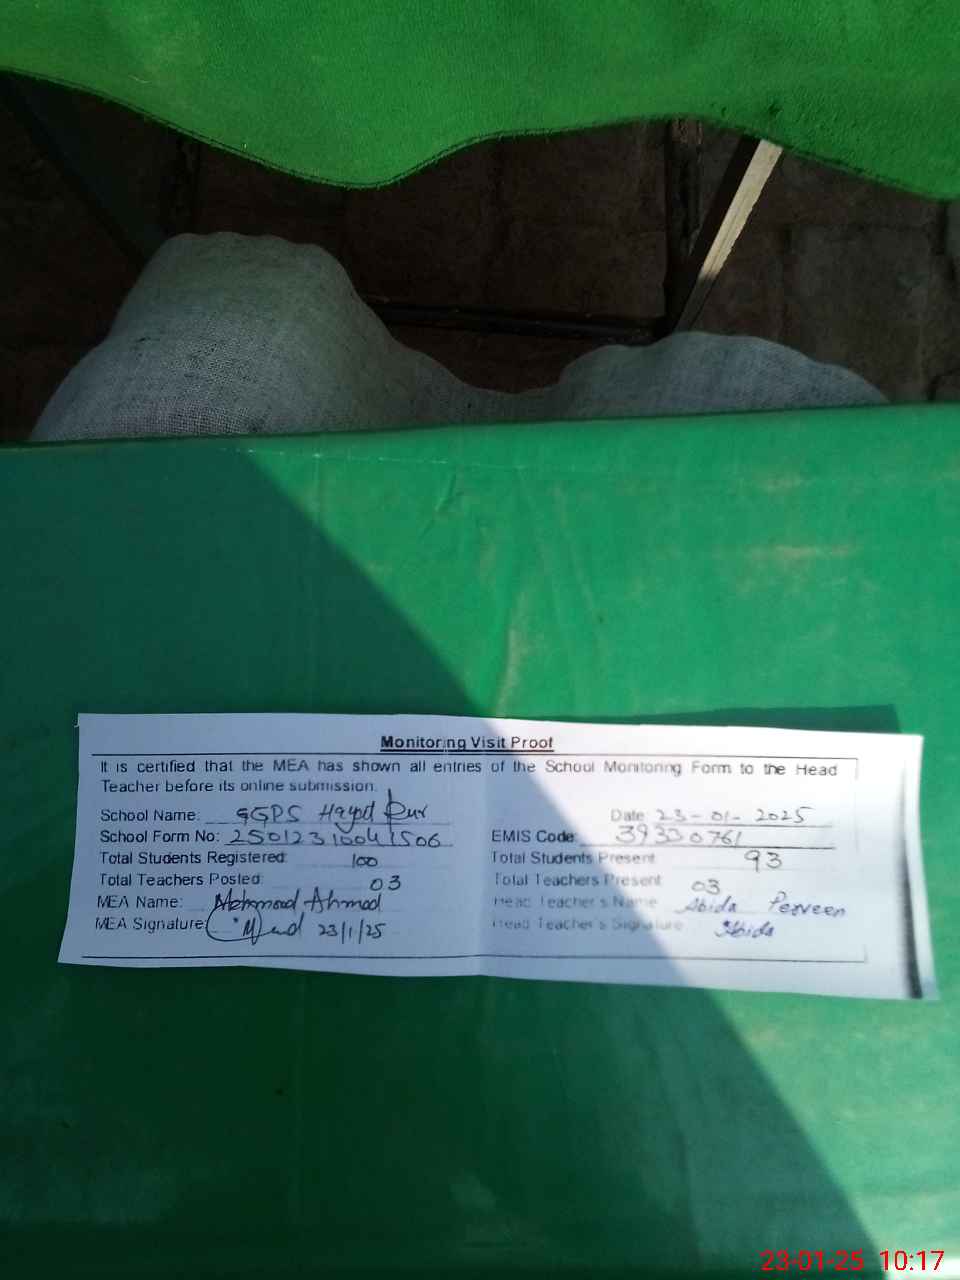 Monitoring Visit Proof
It is certified that the MEA has shown all entries of the School Monitoring Form to the Head
Teacher before its online submission.
School Name: GGPS Hayat Pur Date 23-01-2025
School Form No: 25012310041506 EMIS Code: 39330761
Total Students Registered: 100 Total Students Present 93
Total Teachers Posted: 03 Total Teachers Present 03
MEA Name: Mehmood Ahmad Head Teacher's Name Abida Perveen
MEA Signature: 23/1/25 Head Teacher's Signature Abida
23-01-25 10:17